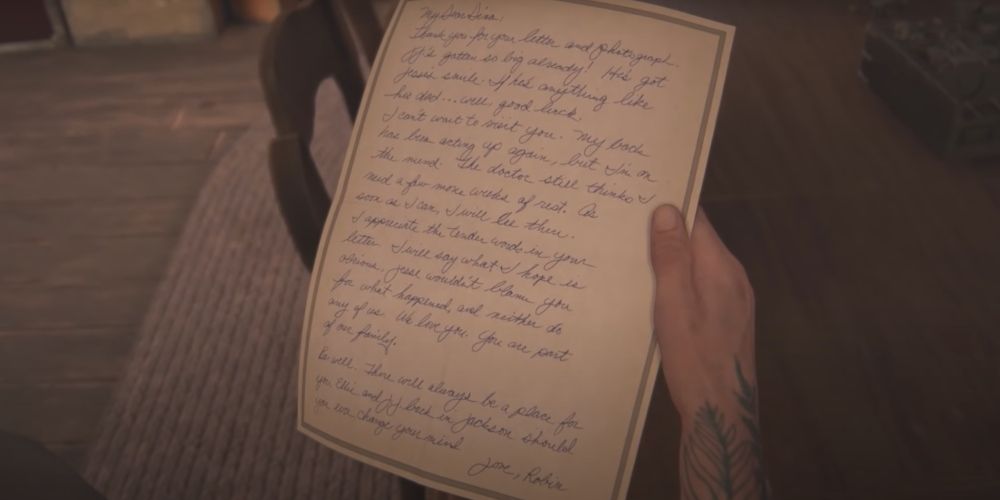 My Dear Dina,
Thank you for your letter and photograph.
JJ's gotten so big already! He's got
Jesse's smile. If he's anything like
his dad... well, good luck.
I can't wait to visit you. My back
has been acting up again, but I'm on
the mend. The doctor still thinks I
need a few more weeks of rest. As
soon as I can, I will be there.
I appreciate the tender words in your
letter. I will say what I hope is
obvious. Jesse wouldn't blame you
for what happened, and neither do
any of us. We love you. You are part
of our family.
Be well. There will always be a place for
you, Ellie and JJ back in Jackson should
you ever change your mind
Love, Robin